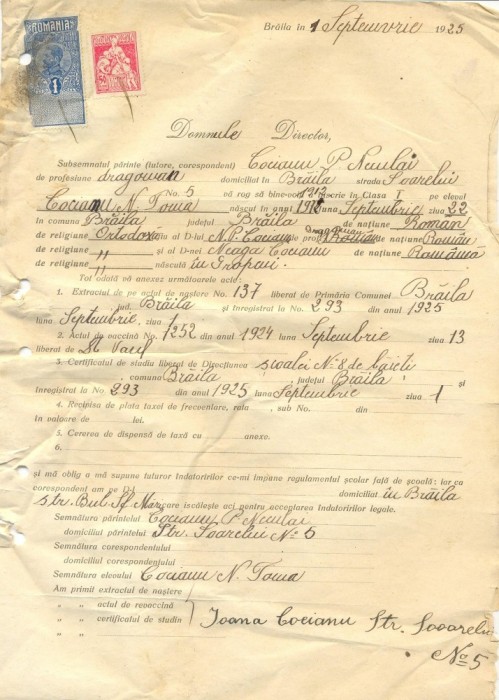 ROMANIA
1
Brăila in 1 Septemvrie 1925
Domnule Director,
Subsemnatul părinte (tutore, corespondent) Cocianu P. Neculai
de profesiune dragoman domiciliat în Brăila strada Soarelui
No. 5 vă rog să bine-voiți înscrie în Clasa I pe elevul
Cocianu N. Toma născut în anul 1912 luna Septembrie ziua 22
în comuna Brăila județul Brăila de națiune Roman
de religiune Ortodoxă al D-lui N. P. Cocianu de prof. dragoman de națiune Român
de religiune " și al D-nei Neaga Cocianu de națiune Română
de religiune " născută in Tropaii.
Tot odată vă anexez următoarele acte:
1. Extractul de pe actul de naștere No. 137 liberat de Primăria Comunei Brăila
jud. Brăila și înregistrat la No. 293 din anul 1925
luna Septembrie, ziua 1
2. Actul de vaccină No. 1252 din anul 1924 luna Septembrie ziua 13
liberat de
3. Certificatul de studiu liberat de Direcțiunea școalei No 8 de baieti
, comuna Brăila județul Brăila și
înregistrat la No. 293 din anul 1925 luna Septembrie ziua 1
4. Recipisa de plata taxei de frecvenire, rata , sub No. din
în valoare de lei.
5. Cererea de dispensă de taxă cu anexe.
6.
și mă oblig a mă supune tuturor îndatoririlor ce-mi impune regulamentul școlar față de școală; iar ca
corespondent am pe D-l domiciliat în Brăila
str. Bul. Sf. Maria care iscălește aci pentru acceptarea îndatoririlor legale.
Semnătura părintelui Cocianu P. Neculai
domiciliul părintelui Str. Soarelui No 5
Semnătura corespondentului
domiciliul corespondentului
Semnătura elevului Cocianu N. Toma
Am primit extractul de naștere
" " actul de revaccină
" " certificatul de studiu Ioana Cocianu Str. Sooarelui
" " No 5